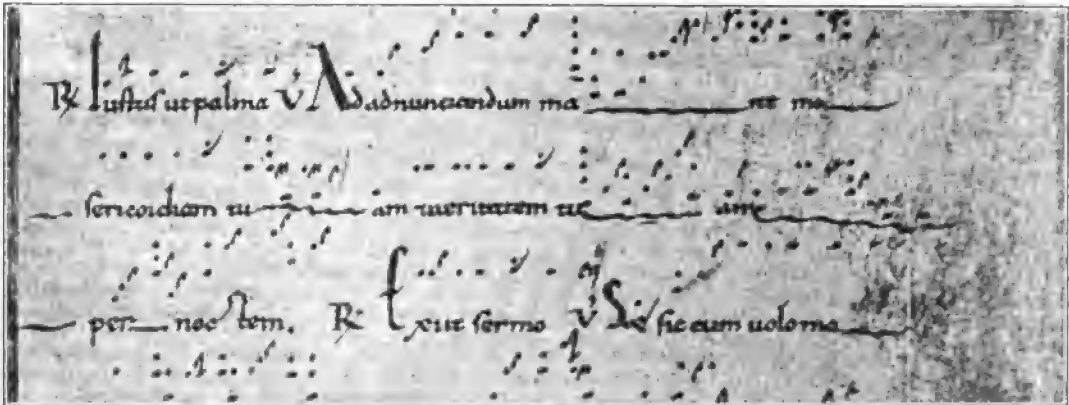 R Iustus ut palma V Ad adnunciandum ma ne mi
sericordiam tu am et ueritatem tu am
per noc tem. R Exiit sermo V Sic eum uolo ma